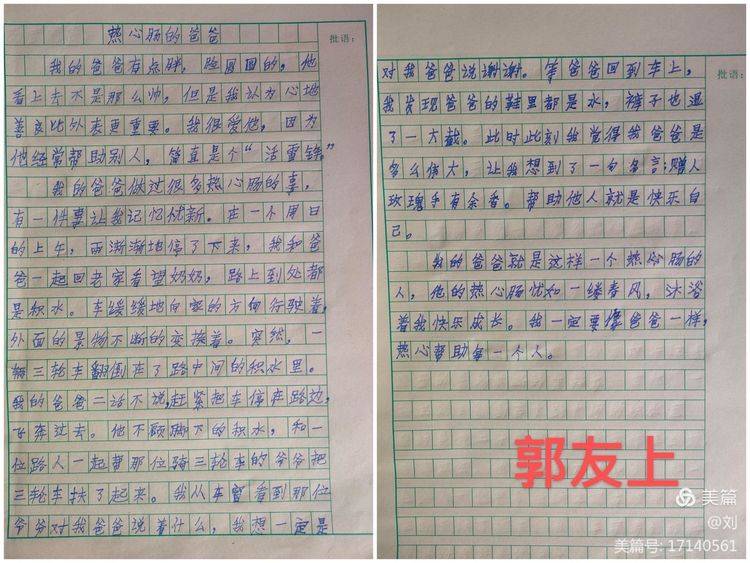 热心肠的爸爸
批语:
我的爸爸有点胖,脸圆圆的,他
看上去不是那么帅,但是我认为心地
善良比外表更重要。我很爱他,因为
他经常帮助别人,简直是个“活雷锋”
我的爸爸做过很多热心肠的事,
有一件事让我记忆优新。在一个周日
的上午,雨渐渐地停了下来,我和爸
爸一起回老家看望奶奶,路上到处都
是积水。车缓缓地向家的方向行驶着,
外面的景物不断的变换着。突然,一
辆三轮车翻倒在了路中间的积水里。
我的爸爸二话不说,赶紧把车停在路边,
飞奔过去。他不顾脚下的积水,和一
位路人一起帮那位骑三轮车的爷爷把
三轮车扶了起来。我从车窗看到那位
爷爷对我爸爸说着什么,我想一定是
批语:
对我爸爸说谢谢。等爸爸回到车上,
我发现爸爸的鞋里都是水,裤子也湿
了一大截。此时此刻我觉得我爸爸是
多么伟大,让我想到了一句名言:赠人
玫瑰手有余香。帮助他人就是快乐自
己。
我的爸爸就是这样一个热心肠的
人,他的热心肠犹如一缕春风,沐浴
着我快乐成长。我一定要像爸爸一样,
热心帮助每一个人。
郭友上
美篇
@刘
美篇号:17140561